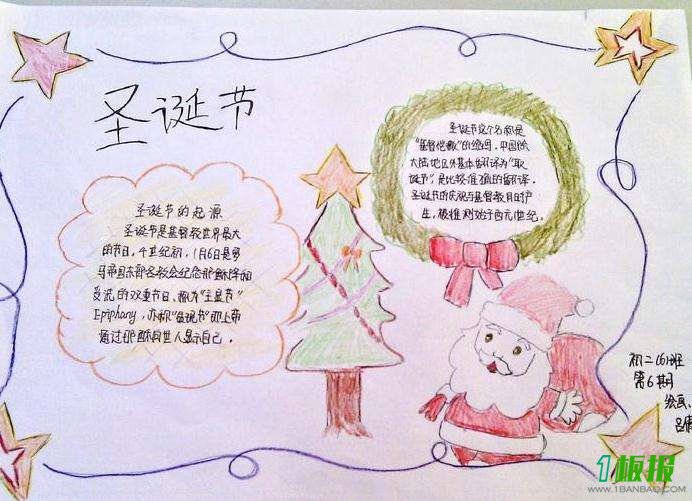 圣诞节
圣诞节的起源
圣诞节是基督教世界最大
的节日。4世纪初,1月6日是罗
马帝国东部各教会纪念耶稣降临和
受洗的双重节日、称为"主显节"
Epiphany,亦称"显现节"即上帝
通过耶稣向世人显示自己。
圣诞节这个名称是
"基督弥撒"的缩写。中国除
大陆地区外基本翻译为"耶
诞节",是比较准确的翻译。
圣诞节的庆祝与基督教同时产
生,被推测始于西元1世纪。
初二(6)班
第6期
绘画:
1板报
WWW.1BANBAO.COM